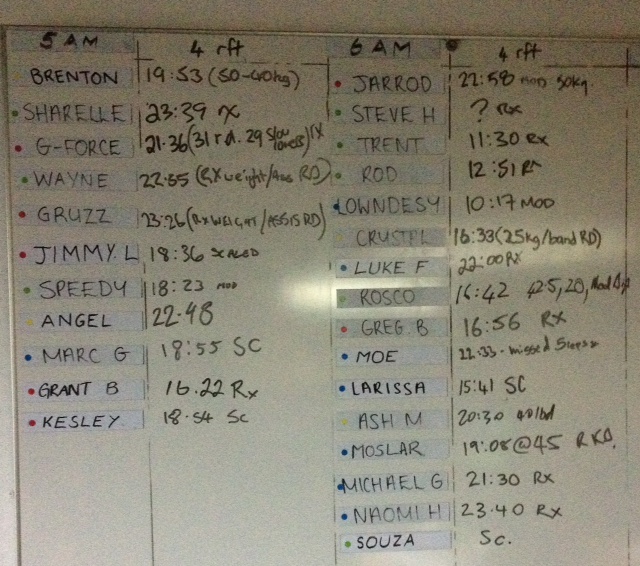 5 AM 4 rft
BRENTON 19:53 (50-40kg)
SHARELLE 23:39 rx
G-FORCE 21.36 (31 rd. 29 slow lowers) rx
WAYNE 22:55 (RX weight/Ass RD)
GRUZZ 23:26 (RX WEIGHT/ASSIS RD)
JIMMY L 18:36 SCALED
SPEEDY 18:23 MOD
ANGEL 22.48
MARC G 18:55 SC
GRANT B 16.22 Rx
KESLEY 18.54 Sc
6 AM 4 rft
JARROD 22:58 MOD 50kg
STEVE H ? Rx
TRENT 11:30 Rx
ROD 12:51 Rx
LOWNDESY 10:17 MOD
CRUSTPL 16:33 (25kg/band RD)
LUKE F 22:00 RX
ROSCO 16:42 42.5, 20, Mod
GREG. B 16:56 Rx
MOE 22:33 - missed
LARISSA 15:41 SC
ASH M 20:30
MOSLAR 19:08 @ 45
MICHAEL G 21:30 Rx
NAOMI H 23.40 Rx
SOUZA Sc.